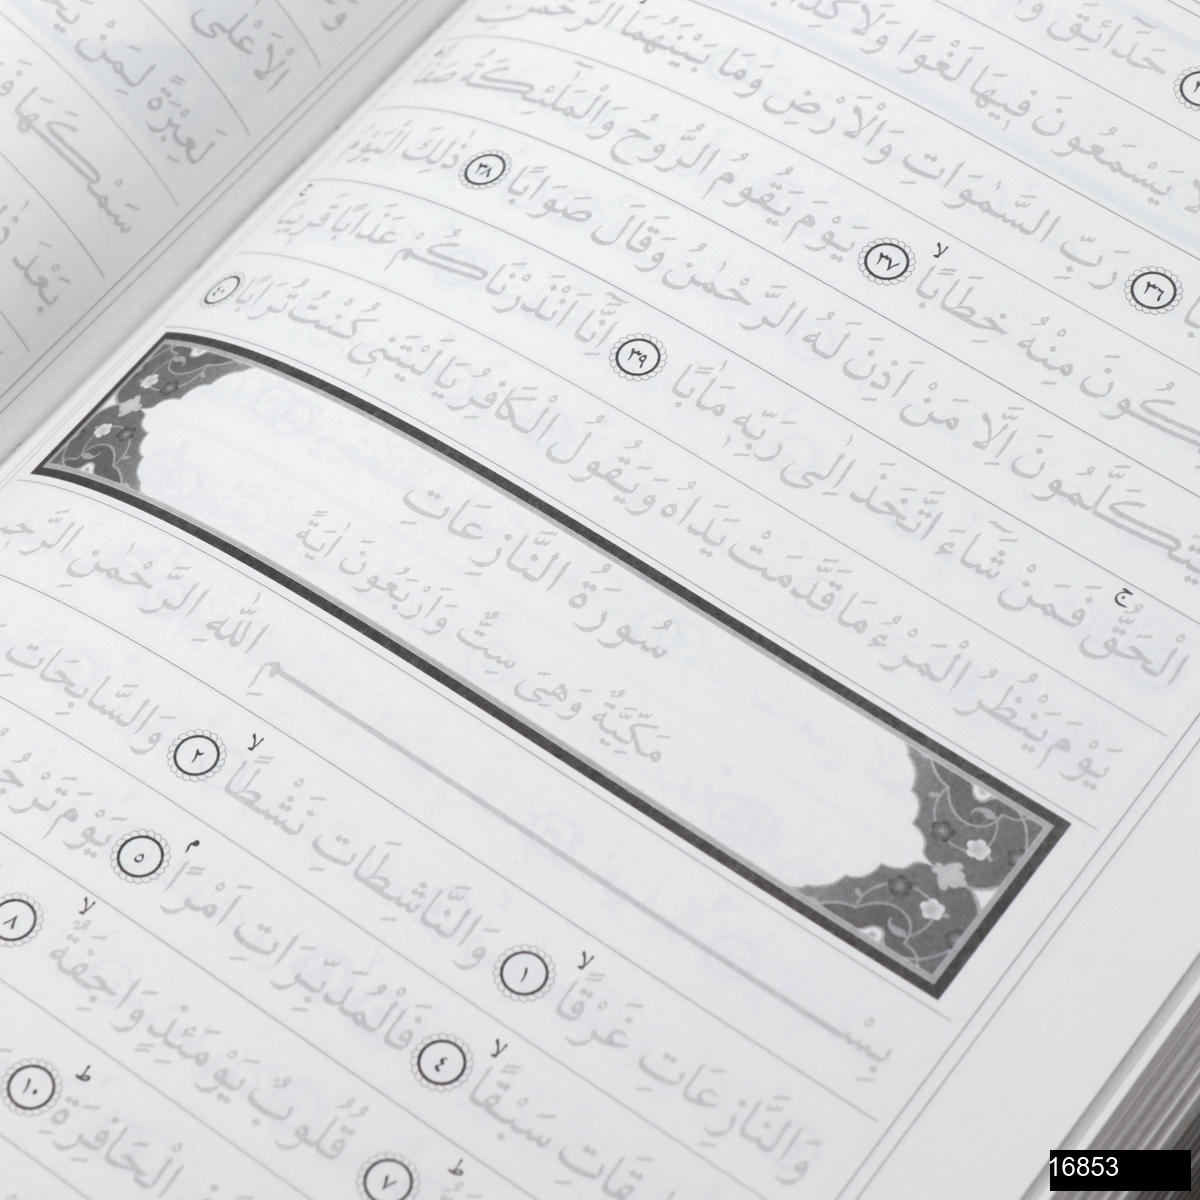 حَدَٓائِقَ
يَسْمَعُونَ فٖيهَا لَغْوًا وَلَا كِذَّابًا
٣٦ رَبِّ السَّمٰوَاتِ وَالْاَرْضِ وَمَا بَيْنَهُمَا الرَّحْمٰنِ
خِطَابًاۙ ٣٧ يَوْمَ يَقُومُ الرُّوحُ وَالْمَلٰٓئِكَةُ صَفًّا
يَتَكَلَّمُونَ اِلَّا مَنْ اَذِنَ لَهُ الرَّحْمٰنُ وَقَالَ صَوَابًا ٣٨ ذٰلِكَ الْيَوْمُ
الْحَقُّۚ فَمَنْ شَٓاءَ اتَّخَذَ اِلٰى رَبِّهٖ مَاٰبًا ٣٩ اِنَّٓا اَنْذَرْنَاكُمْ عَذَابًا قَرٖيبًاۚ
يَوْمَ يَنْظُرُ الْمَرْءُ مَا قَدَّمَتْ يَدَاهُ وَيَقُولُ الْكَافِرُ يَا لَيْتَنٖى كُنْتُ تُرَابًا ٤٠
سُورَةُ النَّازِعَاتِ
مَكِّيَّةٌ وَهِىَ سِتٌّ وَاَرْبَعُونَ اٰيَةً
بِسْمِ اللّٰهِ الرَّحْمٰنِ الرَّحٖيمِ
وَالنَّازِعَاتِ غَرْقًاۙ ١ وَالنَّاشِطَاتِ نَشْطًاۙ ٢ وَالسَّابِحَاتِ
سَبْقًاۙ ٤ فَالْمُدَبِّرَاتِ اَمْرًاۘ ٥ يَوْمَ تَرْجُفُ
٧ قُلُوبٌ يَوْمَئِذٍ وَاجِفَةٌۙ ٨
الْحَافِرَةِۜ ١٠
الْاَعْلٰى
لَعِبْرَةً لِمَنْ
سَمْكَهَا
بَعْدَ
16853